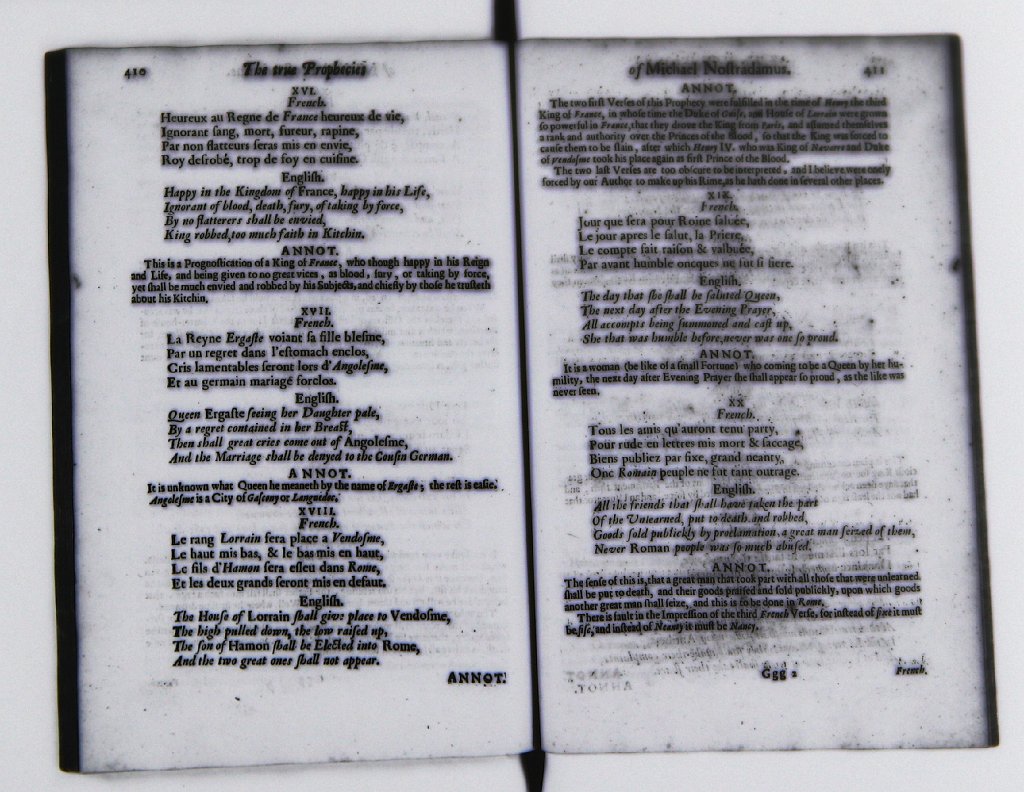 410
The true Prophecies
XVI.
French.
Heureux au Regne de France heureux de vie,
Ignorant sang, mort, fureur, rapine,
Par non flatteurs seras mis en envie,
Roy desrobé, trop de foy en cuisine.
English.
Happy in the Kingdom of France, happy in his Life,
Ignorant of blood, death, fury, of taking by force,
By no flatterers shall be envied,
King robbed, too much faith in Kitchin.
ANNOT.
This is a Prognostication of a King of France, who though happy in his Reign
and Life, and being given to no great vices, as blood, fury, or taking by force,
yet shall be much envied and robbed by his Subjects, and chiefly by those he trusteth
about his Kitchin.
XVII.
French.
La Reyne Ergaste voiant sa fille blesme,
Par un regret dans l'estomach enclos,
Cris lamentables seront lors d'Angolesme,
Et au germain mariage forclos.
English.
Queen Ergaste seeing her Daughter pale,
By a regret contained in her Breast,
Then shall great cries come out of Angolesme,
And the Marriage shall be denyed to the Cousin German.
ANNOT.
It is unknown what Queen he meaneth by the name of Ergaste; the rest is easie.
Angolesme is a City of Gascony or Languedoc.
XVIII.
French.
Le rang Lorrain fera place a Vendosme,
Le haut mis bas, & le bas mis en haut,
Le fils d'Hamon sera esleu dans Rome,
Et les deux grands seront mis en defaut.
English.
The House of Lorrain shall give place to Vendosme,
The high pulled down, the low raised up,
The son of Hamon shall be Elected into Rome,
And the two great ones shall not appear.
ANNOT.
of Michael Nostradamus.
411
ANNOT.
The two first Verses of this Prophecy were fulfilled in the time of Henry the third
King of France, in whose time the Duke of Guise, and House of Lorrain were grown
so powerful in France, that they drove the King from Paris, and assumed themselves
a rank and authority over the Princes of the Blood, so that the King was forced to
cause them to be slain, after which Henry IV. who was King of Navarre and Duke
of Vendosme took his place again as first Prince of the Blood.
The two last Verses are too obscure to be interpreted, and I believe were onely
forced by our Author to make up his Rime, as he hath done in several other places.
XIX.
French.
Jour que sera pour Roine saluée,
Le jour apres le salut, la Priere,
Le compte fait raison & valbuée,
Par avant humble oncques ne fut si fiere.
English.
The day that she shall be saluted Queen,
The next day after the Evening Prayer,
All accompts being summoned and cast up,
She that was humble before, never was one so proud.
ANNOT.
It is a woman (be like of a small Fortune) who coming to be a Queen by her hu-
mility, the next day after Evening Prayer she shall appear so proud, as the like was
never seen.
XX
French.
Tous les amis qu'auront tenu party,
Pour rude en lettres mis mort & saccage,
Biens publiez par fixe, grand neanty,
Onc Romain peuple ne fut tant outrage.
English.
All the friends that shall have taken the part
Of the Unlearned, put to death and robbed,
Goods sold publickly by proclamation, a great man seized of them,
Never Roman people was so much abused.
ANNOT.
The sense of this is, that a great man that took part with all those that were unlearned
shall be put to death, and their goods praised and sold publickly, upon which goods
another great man shall seize, and this is to be done in Rome.
There is fault in the Impression of the third French Verse, for instead of fixe it must
be fise, and instead of Neanty it must be Nancy.
Ggg 2
French.